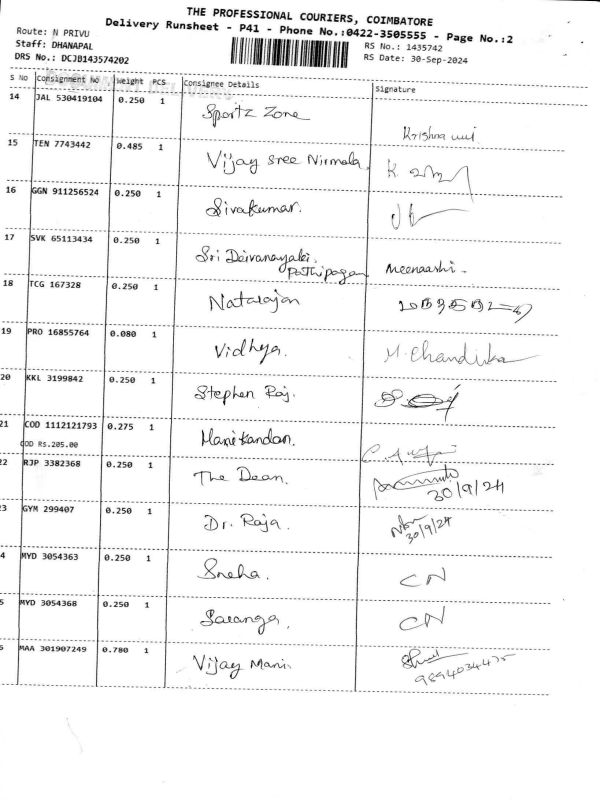 THE PROFESSIONAL COURIERS, COIMBATORE
Delivery Runsheet - P41 - Phone No.:0422-3505555 - Page No.:2
Route: N PRIVU
Staff: DHANAPAL
DRS No.: DCJB143574202
RS No.: 1435742
RS Date: 30-Sep-2024
S No Consignment No Weight PCS Consignee Details Signature
14 JAL 530419104 0.250 1 Sportz Zone
15 TEN 7743442 0.485 1 Vijay Sree Nirmala K
16 GGN 911256524 0.250 1 Sivakumar.
17 SVK 65113434 0.250 1 Sri Deivanayaki Meenaashi
18 TCG 167328 0.250 1 Natarajan
19 PRO 16855764 0.080 1 Vidhya. M. Chandrika
20 KKL 3199842 0.250 1 Stephen Raj.
21 COD 1112121793 0.275 1 Manikandan.
COD RS.205.00
22 RJP 3382368 0.250 1 The Dean. 30/9/24
23 GYM 299407 0.250 1 Dr. Raja. 30/9/24
4 MYD 3054363 0.250 1 Sneha. CN
5 MYD 3054368 0.250 1 Saranga. CN
6 MAA 301907249 0.780 1 Vijay Mani.